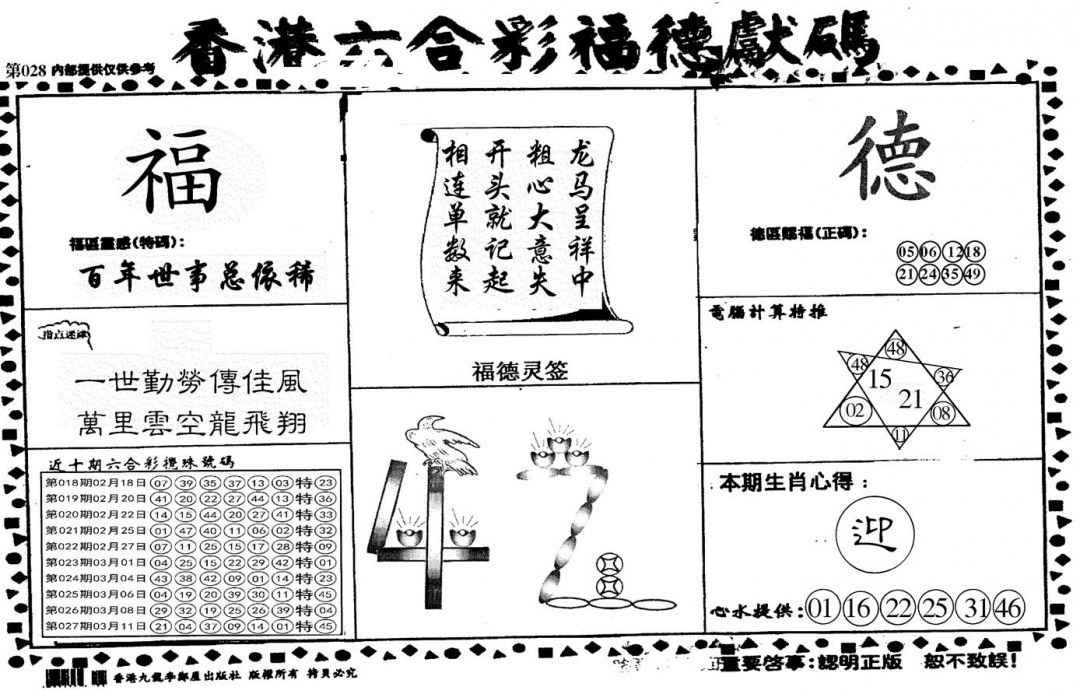 香港六合彩福德獻碼
第028 内部提供仅供参考
福
福區靈感(特碼):
百年世事总依稀
指点迷津
一世勤勞傳佳風
萬里雲空龍飛翔
近十期六合彩攪珠號碼
第018期02月18日 07 39 35 37 13 03 特 23
第019期02月20日 41 20 22 27 44 13 特 36
第020期02月22日 14 15 44 20 27 41 特 33
第021期02月25日 01 47 40 11 06 02 特 32
第022期02月27日 07 11 25 15 17 28 特 09
第023期03月01日 04 25 15 22 29 42 特 01
第024期03月04日 43 38 42 09 01 14 特 23
第025期03月06日 04 19 20 39 30 11 特 45
第026期03月08日 29 32 19 25 26 39 特 04
第027期03月11日 21 04 37 09 14 01 特 45
龙马呈祥中
粗心大意失
开头就记起
相连单数来
福德灵签
德
德區賜福(正碼):
05 06 12 18
21 24 35 49
電腦計算特推
48
48 36
15
21
02 08
11
本期生肖心得:
迎
心水提供: 01 16 22 25 31 46
香港九龍李鄭屋出版社 版權所有 拷貝必究
重要啓事:認明正版 恕不致誤!